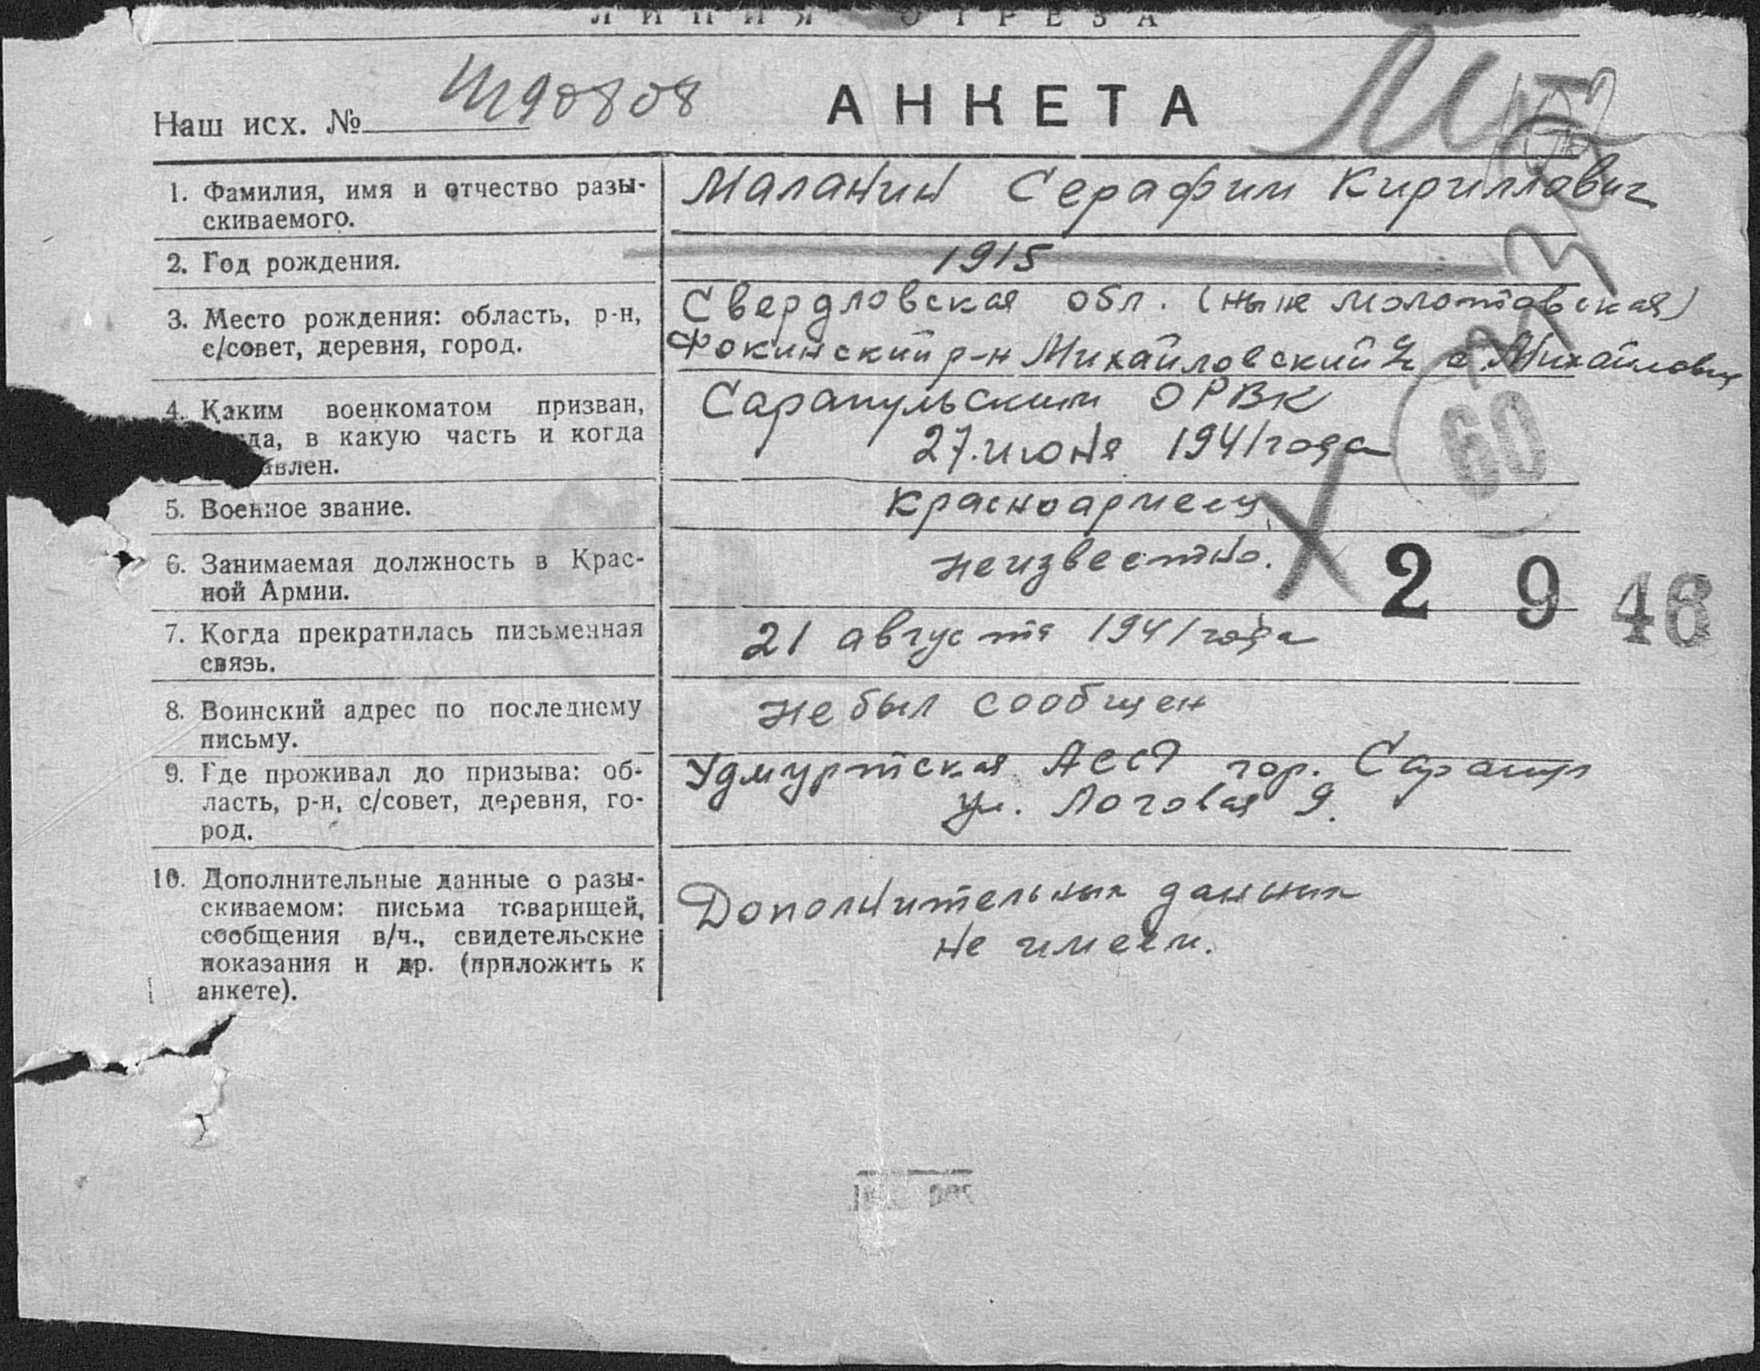 ЛИНИЯ ОТРЕЗА
Наш исх. № 90808
АНКЕТА
1. Фамилия, имя и отчество разы-
скиваемого.
Маланин Серафим Кириллович
2. Год рождения.
1915
3. Место рождения: область, р-н,
с/совет, деревня, город.
Свердловская обл. (ныне Молотовская)
Фокинский р-н Михайловский с. Михайловск
4. Каким военкоматом призван,
в какую часть и когда
Сарапульским ОРВК
27 июня 1941 года
5. Военное звание.
Красноармеец
6. Занимаемая должность в Крас-
ной Армии.
неизвестно.
7. Когда прекратилась письменная
связь.
21 августа 1941 года
8. Воинский адрес по последнему
письму.
не был сообщен
9. Где проживал до призыва: об-
ласть, р-н, с/совет, деревня, го-
род.
Удмуртская АССР гор. Сарапул
ул. Логовая 9.
10. Дополнительные данные о разы-
скиваемом: письма товарищей,
сообщения в/ч., свидетельские
показания и др. (приложить к
анкете).
Дополнительных данных
не имеем.
60
2 9 46